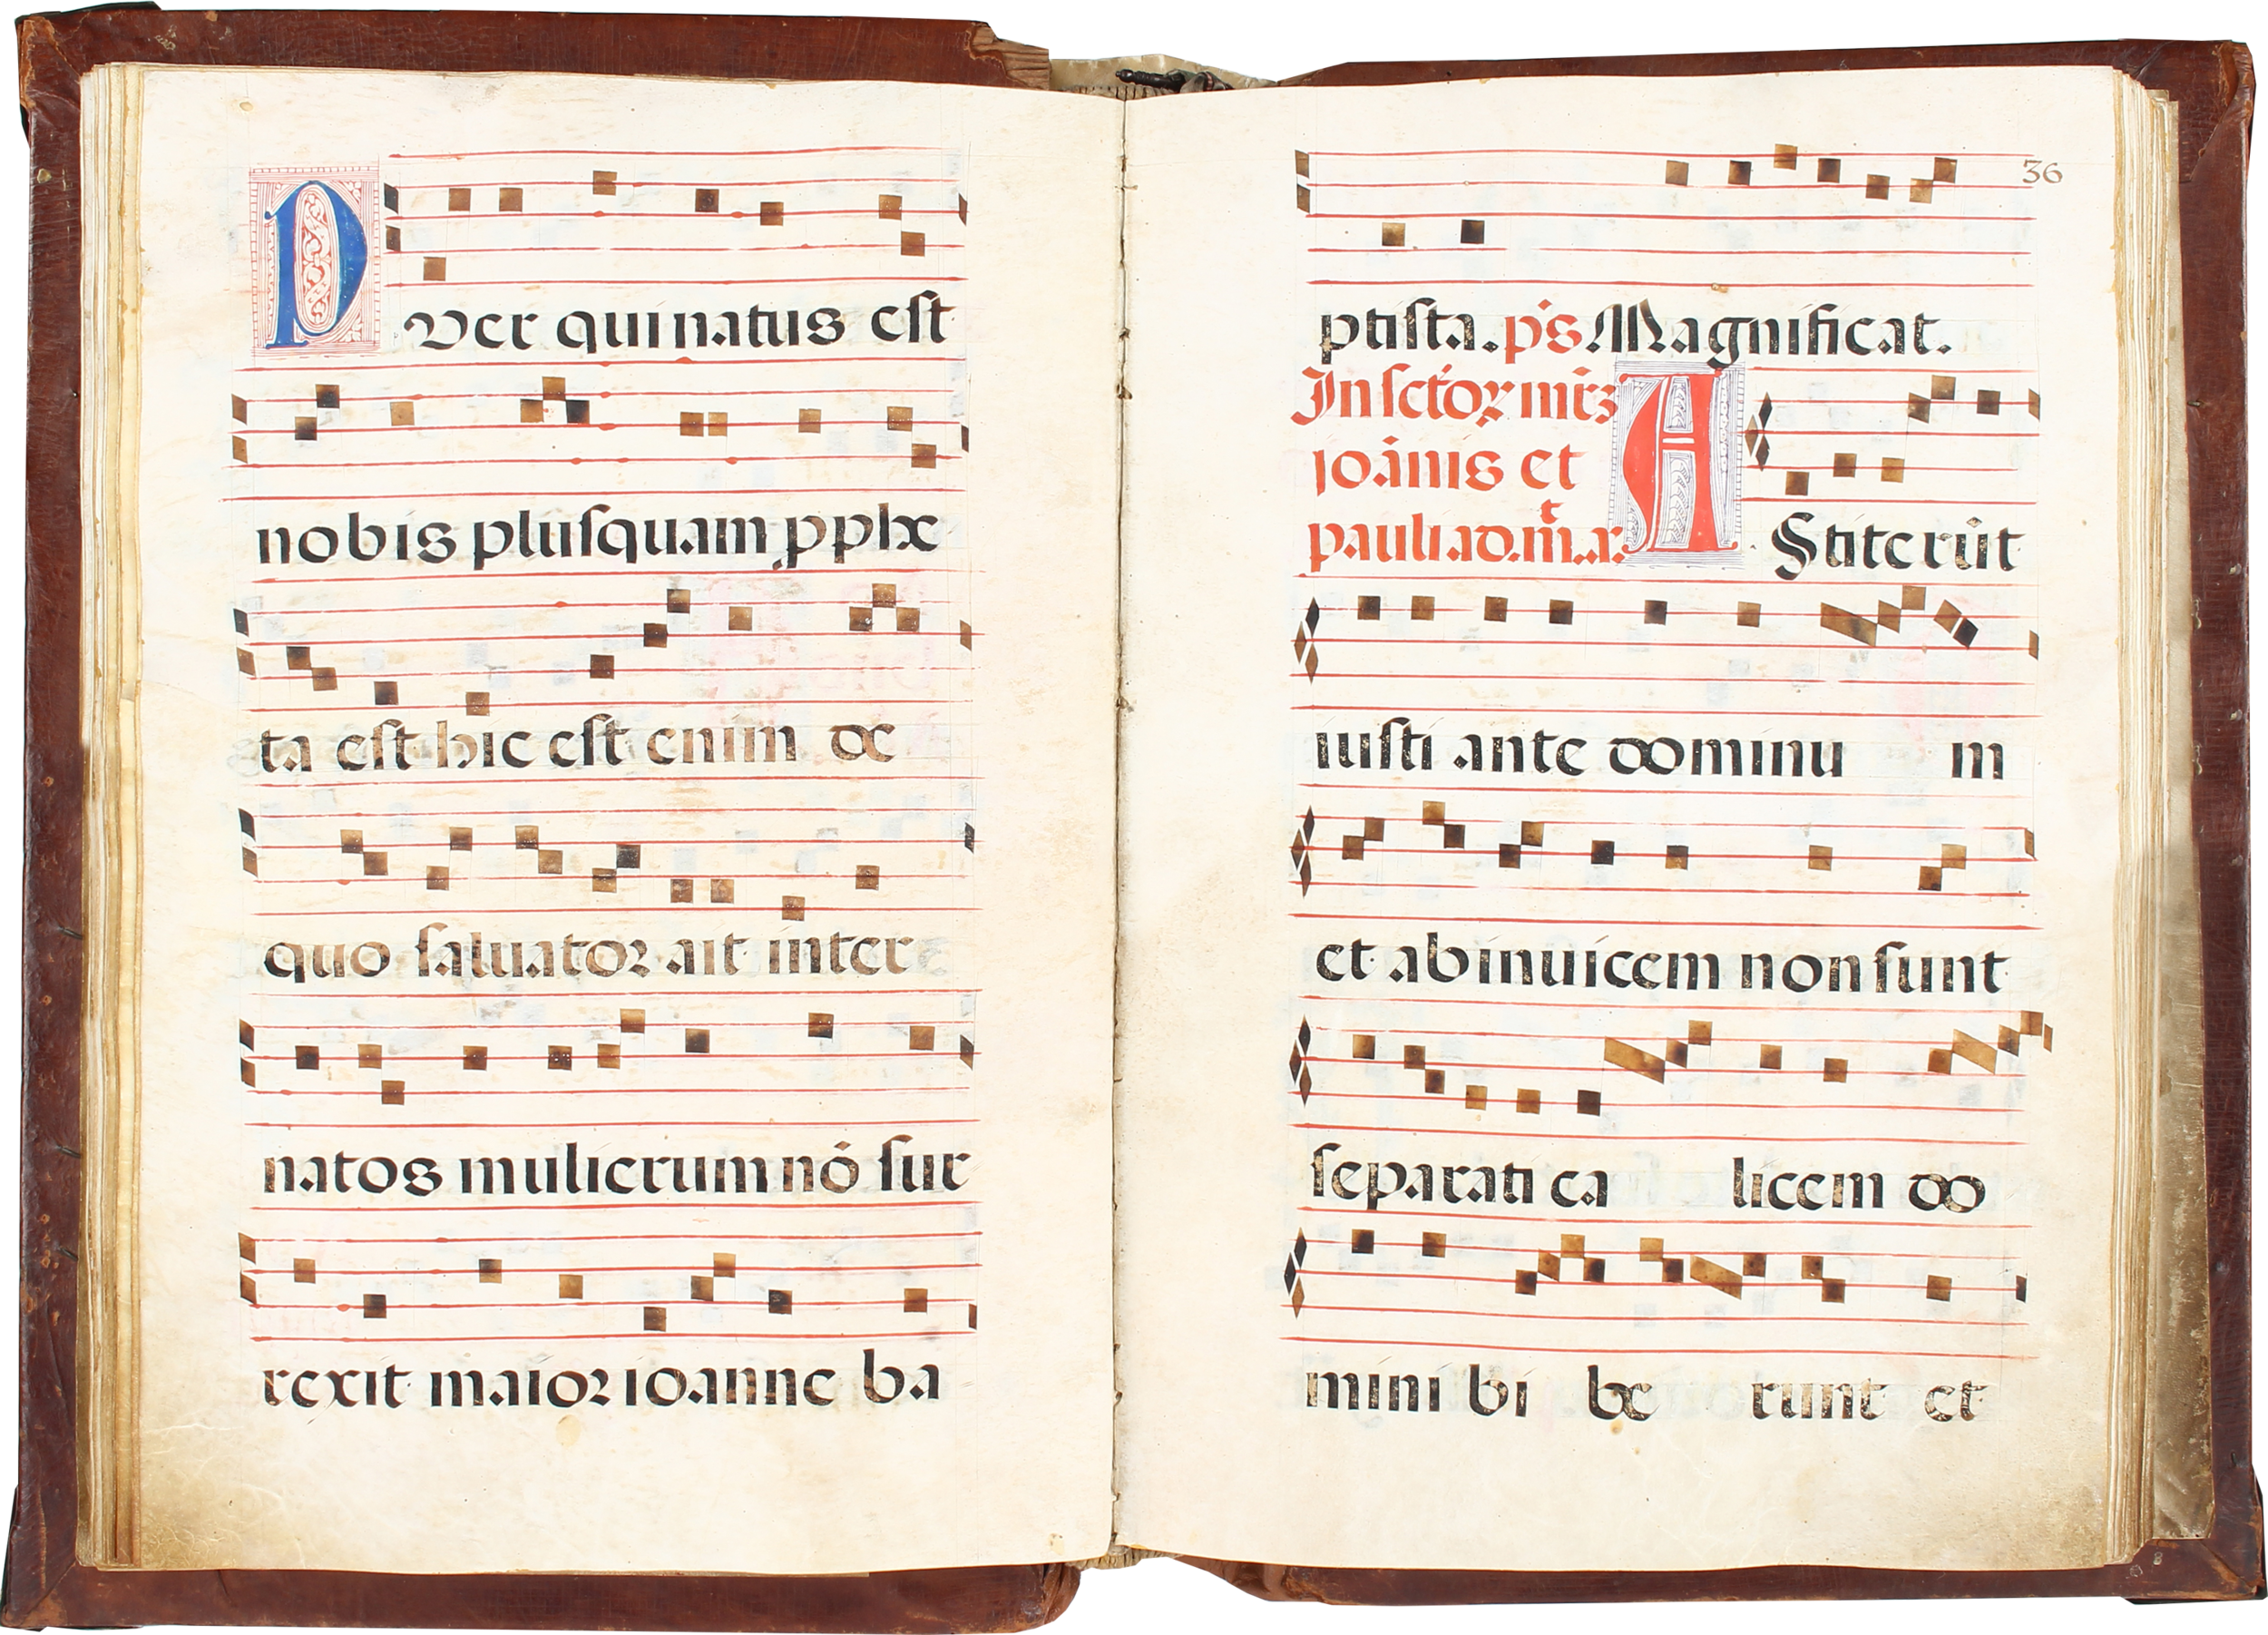 Puer qui natus est
nobis plusquam ꝓphe
ta est hic est enim de
quo saluator ait inter
natos mulierum nō sur
rexit maior ioanne ba
36
ptista. ps̄ Magnificat.
In sctōꝝ mr̄ꝫ
ioānis et
pauli ad.m̄.a. Astiterūt
iusti ante dominu m
et abinuicem non sunt
separati ca licem do
mini bi be runt et